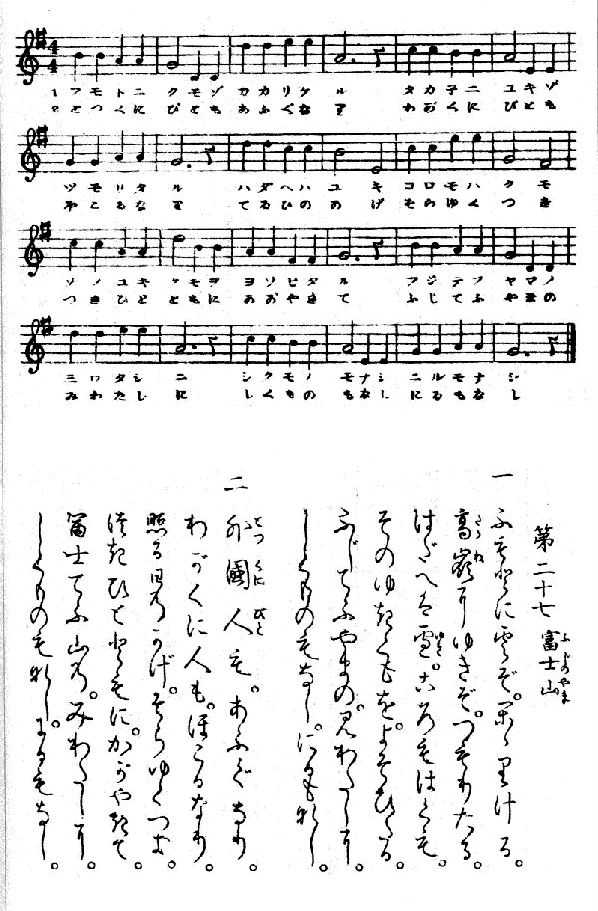 4
4
1 フモトニ クモゾ カカリケ ル タカ子ニ ユキゾ
2 とつくに びとも あふぐな り わがくに びとも
ツモリタ ル ハダヘハ ユ キ コロモハ ク モ
ほこるな り てるひの か げ そらゆく つ き
ソノユキ クモヲ ヨソヒタ ル フジテフ ヤマノ
つきひと ともに かがやき て ふじてふ やまの
ミワタシ ニ シクモノ モナシ ニルモナ シ
みわたし に しくもの もなし にるもな し
第二十七 富士山
ふじのやま
一 ふもとに雲ぞ。かゝりける。
高嶺にゆきぞ。つもりたる。
たかね
はだへは雪。ころもはくも。
ゆき
そのゆきくもを。よそひたる。
ふじてふやまの。見わたしに。
しくものもなし。にるもなし。
二 外國人も。あふぐなり。
とつくにびと
わがくに人も。ほこるなり。
照る日のかげ。そらゆくつき。
つきひとともに。かがやきて。
富士てふ山の。みわたしに。
しくものもなし。にるもなし。